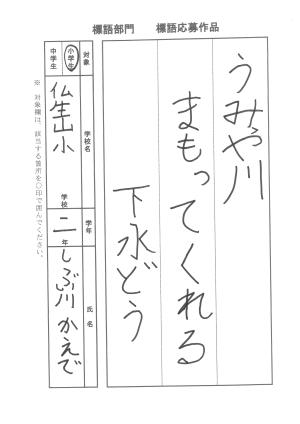 標語部門　標語応募作品
うみや川
まもってくれる
下水どう
対象
小学生
中学生
学校名
仏生山小
学校
学年
二年
氏名
しぶ川 かえで
※ 対象欄は、該当する箇所を○印で囲んでください。